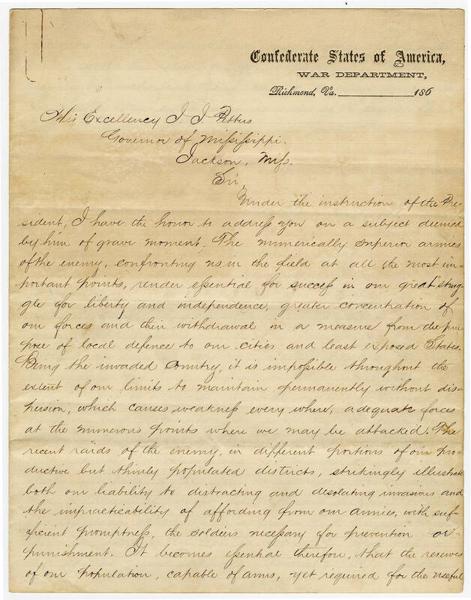 Confederate States of America,
WAR DEPARTMENT,
Richmond, Va. 186
His Excellency J J Pettus
Governor of Mississippi.
Jackson, Miss.
Sir,
Under the instruction of the Pre-
sident, I have the honor to address you on a subject deemed
by him of grave moment. The numerically superior armies
of the enemy, confronting us in the field at all the most im-
portant points, render essential for success in our great strug-
gle for liberty and independence, greater concentration of
our forces and their withdrawal in a measure from the pur-
pose of local defence to our cities and least exposed States.
Being the invaded country, it is impossible throughout the
extent of our limits to maintain permanently without dis-
persion, which causes weakness every where, adequate forces
at the numerous points where we may be attacked. The
recent raids of the enemy, in different portions of our pro-
ductive but thinly populated districts, strikingly illustrate
both our liability to distracting and desolating invasions and
the impracticability of affording from our armies, with suf-
ficient promptness, the soldiers necessary for prevention or
punishment. It becomes essential therefore, that the reserves
of our population, capable of arms, yet required for the useful